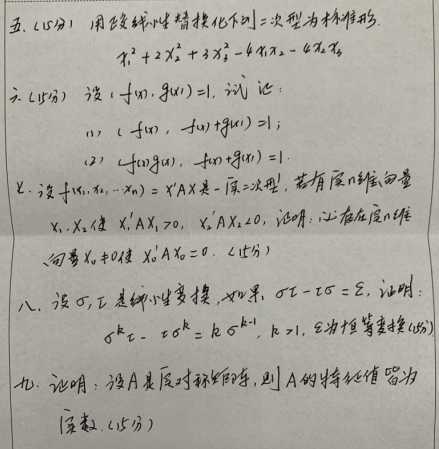 五.(15分) 用正交线性替换化下列二次型为标准形.
x₁²+2x₂²+3x₃²-4x₁x₂-4x₂x₃
六.(15分) 设(f(x),g(x))=1,试证:
(1) (f(x), f(x)+g(x))=1;
(2) (f(x)g(x), f(x)+g(x))=1.
七. 设f(x₁,x₂,…xₙ)=X'AX是一实二次型,若有实n维向量
X₁.X₂使X₁'AX₁>0, X₂'AX₂<0, 证明:必存在实n维
向量X₀≠0使X₀'AX₀=0. (15分)
八. 设σ,τ是线性变换,如果, στ-τσ=ε, 证明:
σᵏτ-τσᵏ=kσᵏ⁻¹, k>1, ε为恒等变换(15分)
九. 证明:设A是实对称矩阵,则A的特征值皆为
实数.(15分)